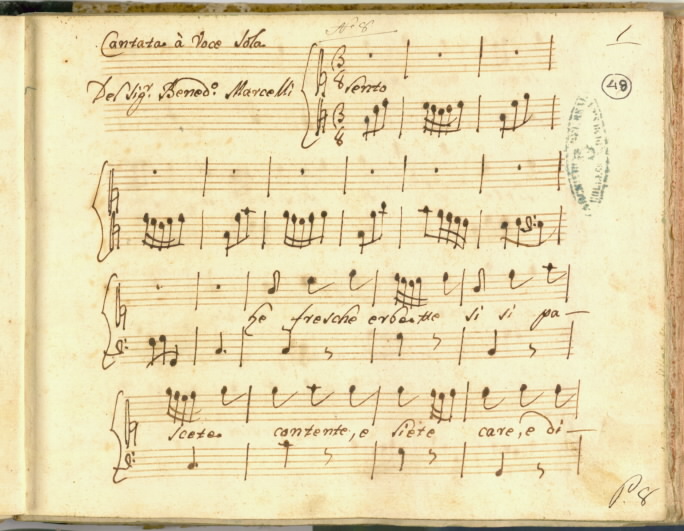 Nº 8
1
Cantata à Voce Sola
Del Sigr. Benedo. Marcelli
Lento
49
3 8
3 8
he fresche erbette si si pa-
scete contente, e siete care, e di-
P. 8